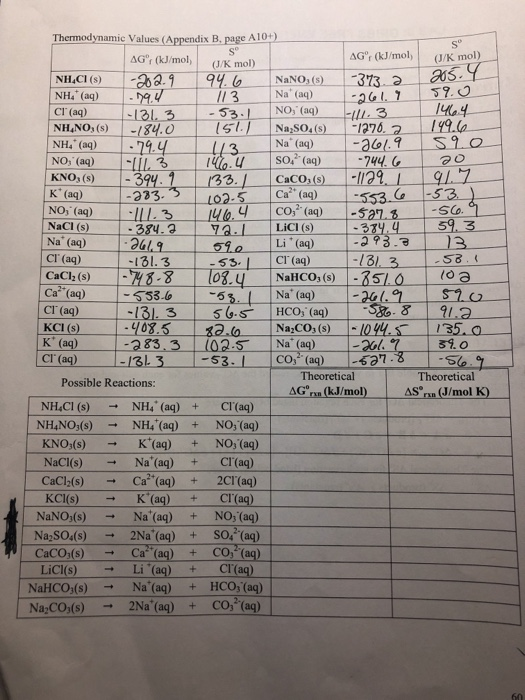 Thermodynamic Values (Appendix B, page A10+)
ΔG°f (kJ/mol) S° (J/K mol) ΔG°f (kJ/mol) S° (J/K mol)
NH4Cl (s) -202.9 94.6 NaNO3 (s) -373.2 205.4
NH4+ (aq) -79.4 113 Na+ (aq) -261.9 59.0
Cl- (aq) -131.3 -53.1 NO3- (aq) -111.3 146.4
NH4NO3 (s) -184.0 151.1 Na2SO4 (s) -1270.2 149.6
NH4+ (aq) -79.4 113 Na+ (aq) -261.9 59.0
NO3- (aq) -111.3 146.4 SO42- (aq) -744.6 20
KNO3 (s) -394.9 133.1 CaCO3 (s) -1129.1 91.7
K+ (aq) -283.3 102.5 Ca2+ (aq) -553.6 -53.1
NO3- (aq) -111.3 146.4 CO32- (aq) -527.8 -56.9
NaCl (s) -384.2 72.1 LiCl (s) -384.4 59.3
Na+ (aq) -261.9 59.0 Li+ (aq) -293.3 13
Cl- (aq) -131.3 -53.1 Cl- (aq) -131.3 -53.1
CaCl2 (s) -748.8 108.4 NaHCO3 (s) -851.0 102
Ca2+ (aq) -553.6 -53.1 Na+ (aq) -261.9 59.0
Cl- (aq) -131.3 56.5 HCO3- (aq) -586.8 91.2
KCl (s) -408.5 82.6 Na2CO3 (s) -1044.5 135.0
K+ (aq) -283.3 102.5 Na+ (aq) -261.9 59.0
Cl- (aq) -131.3 -53.1 CO32- (aq) -527.8 -56.9
Possible Reactions: Theoretical ΔG°rxn (kJ/mol) Theoretical ΔS°rxn (J/mol K)
NH4Cl (s) → NH4+ (aq) + Cl-(aq)
NH4NO3(s) → NH4+(aq) + NO3-(aq)
KNO3(s) → K+(aq) + NO3-(aq)
NaCl(s) → Na+(aq) + Cl-(aq)
CaCl2(s) → Ca2+(aq) + 2Cl-(aq)
KCl(s) → K+(aq) + Cl-(aq)
NaNO3(s) → Na+(aq) + NO3-(aq)
Na2SO4(s) → 2Na+(aq) + SO42-(aq)
CaCO3(s) → Ca2+(aq) + CO32-(aq)
LiCl(s) → Li+(aq) + Cl-(aq)
NaHCO3(s) → Na+(aq) + HCO3-(aq)
Na2CO3(s) → 2Na+(aq) + CO32-(aq)